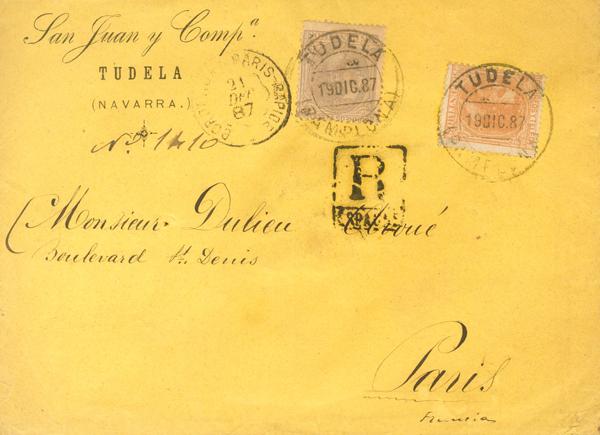 San Juan y Comp.ª
TUDELA
(NAVARRA.)
Nº 1410
PARIS
21
DEC
87
TUDELA
19 DIC. 87
(PAMPLONA)
TUDELA
19 DIC. 87
R
Monsieur Dulieu
Boulevard St. Denis
Paris
Francia